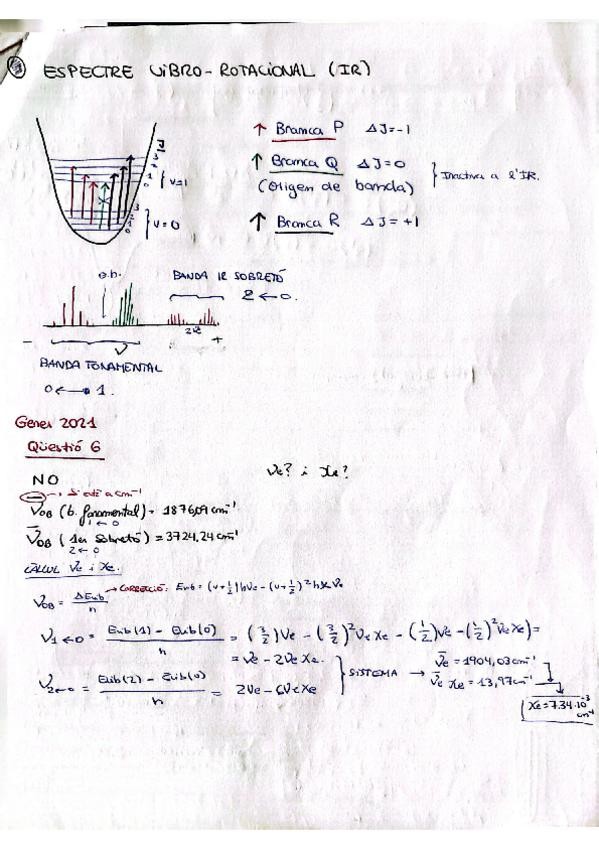 ESPECTRE VIBRO-ROTACIONAL (IR)
↑ Branca P ΔJ=-1
↑ Branca Q ΔJ=0
(Origen de banda)
} Inactiva a l'IR.
↑ Branca R ΔJ=+1
J
3
2
1
0
} v=1
3
2
1
0
} v=0
o.b.
BANDA IR SOBRETÓ
2 ← 0.
- +
BANDA FONAMENTAL
0 ← 1.
Gener 2021
Qüestió 6
νe? i xe?
NO
→ Si està a cm⁻¹
ν̄OB (b. fonamental) = 1876,09 cm⁻¹
1 ← 0
ν̄OB (1er sobretó) = 3724,24 cm⁻¹
2 ← 0
CÀLCUL νe i xe.
νOB = ΔEvib/h → CORRECCIÓ: Evib = (v+1/2)hνe - (v+1/2)²hxeνe
ν1←0 = Evib(1) - Evib(0)/h = (3/2)νe - (3/2)²νexe - (1/2)νe - (1/2)²νexe) =
= νe - 2νexe.
ν2←0 = Evib(2) - Evib(0)/h = 2νe - 6νexe
} SISTEMA → ν̄e = 1904,03 cm⁻¹
ν̄e xe = 13,97 cm⁻¹
xe = 7.34·10⁻³ cm⁻¹